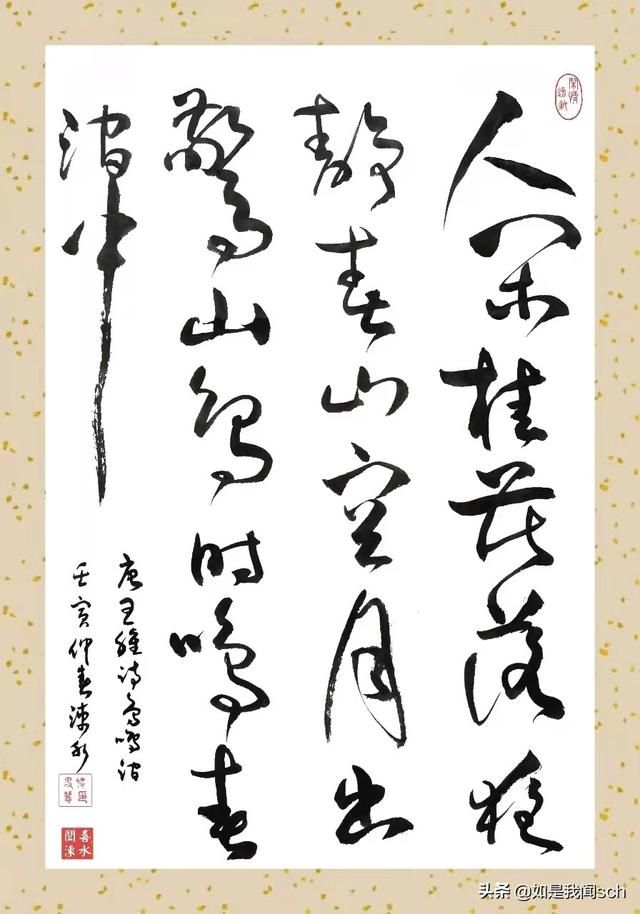 人闲桂花落夜
静春山空月出
惊山鸟时鸣春
涧中
唐王维诗鸟鸣涧
壬寅仲春
头条 @如是我闻sch